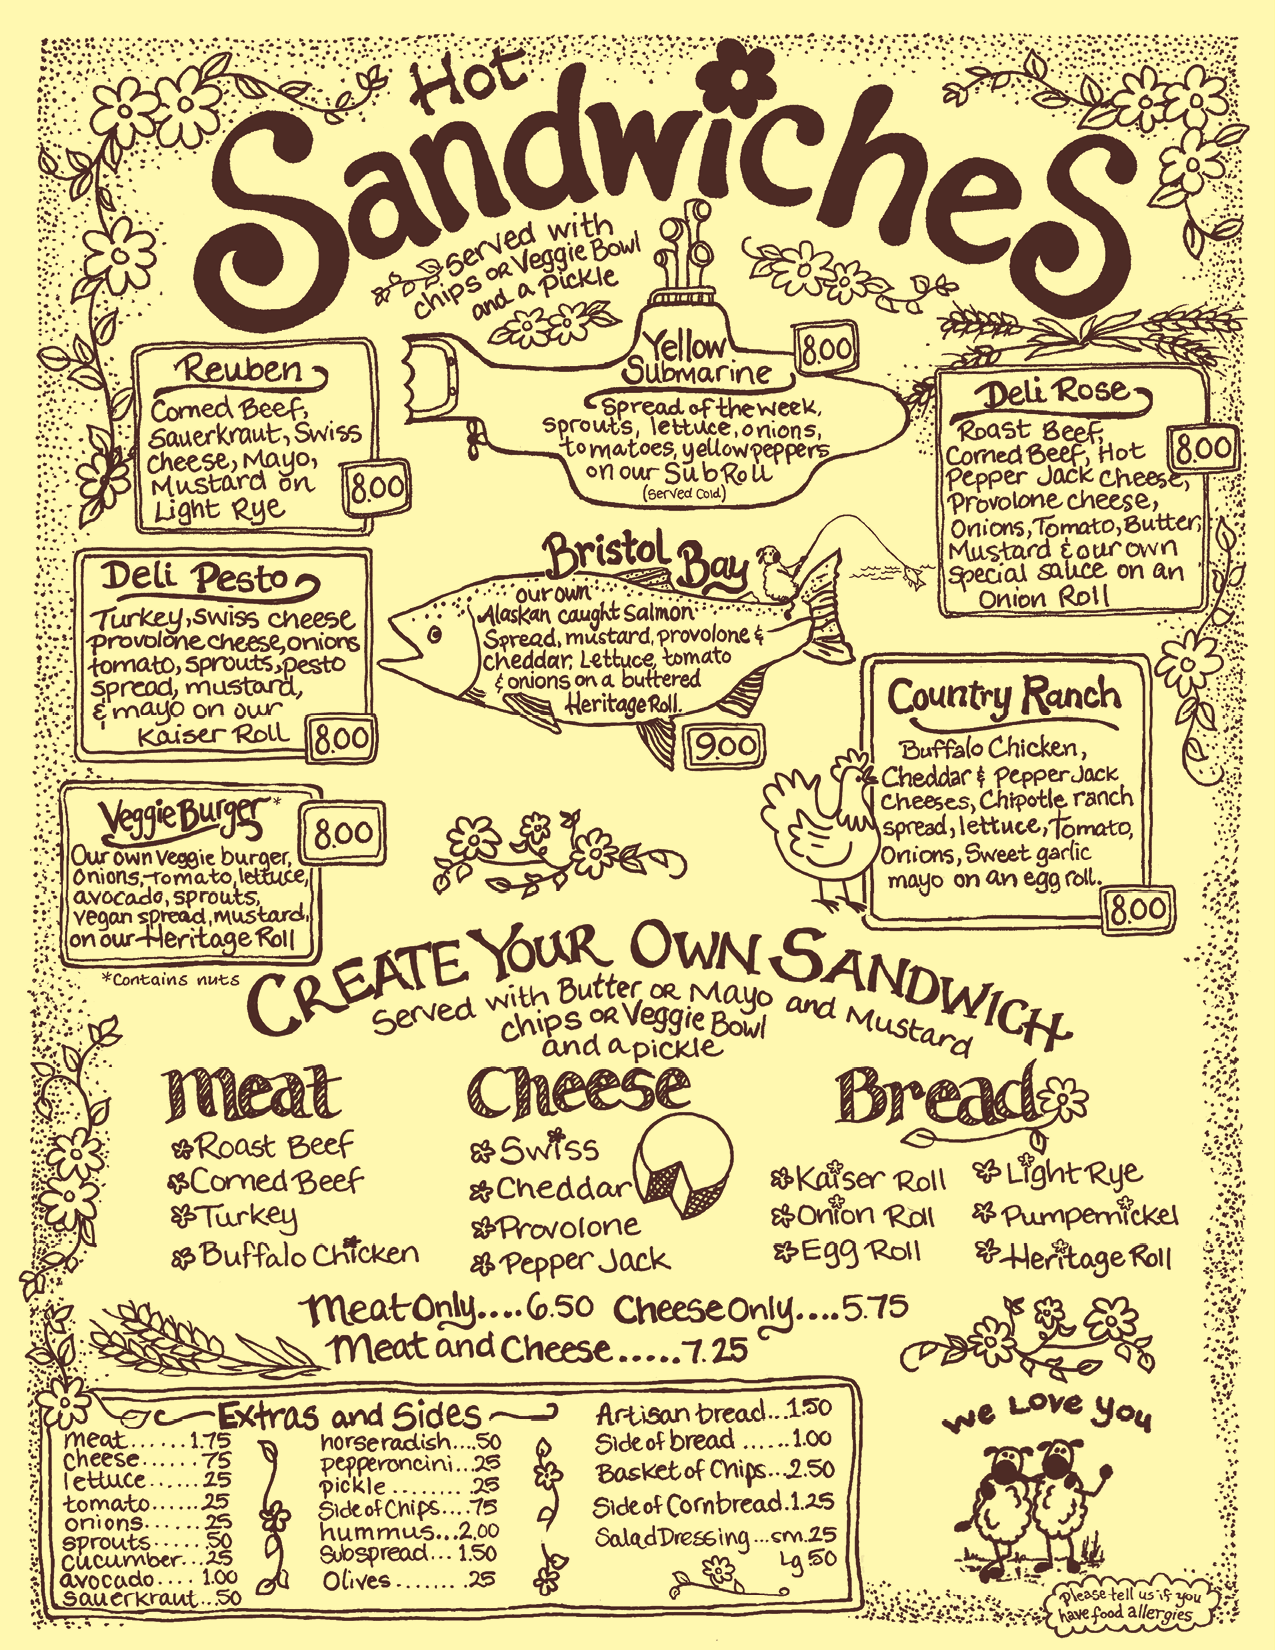 Hot
Sandwiches
served with
chips or Veggie Bowl
and a pickle
Reuben
Corned Beef,
Sauerkraut, Swiss
Cheese, Mayo,
Mustard on
Light Rye
8.00
Yellow
Submarine
8.00
Spread of the week,
sprouts, lettuce, onions,
tomatoes, yellow peppers
on our Sub Roll
(Served Cold)
Deli Rose
Roast Beef,
Corned Beef, Hot
Pepper Jack Cheese,
Provolone cheese,
Onions, Tomato, Butter,
Mustard & our own
special sauce on an
Onion Roll
8.00
Deli Pesto
Turkey, swiss cheese
Provolone cheese, onions
tomato, sprouts, pesto
spread, mustard,
& mayo on our
Kaiser Roll
8.00
Bristol Bay
our own
Alaskan caught Salmon
Spread, mustard, provolone &
cheddar, Lettuce, tomato
& onions on a buttered
Heritage Roll.
9.00
Country Ranch
Buffalo Chicken,
Cheddar & Pepper Jack
Cheeses, Chipotle ranch
spread, lettuce, Tomato,
Onions, Sweet garlic
mayo on an egg roll.
8.00
Veggie Burger*
8.00
Our own veggie burger,
Onions, Tomato, lettuce,
avocado, sprouts,
vegan spread, mustard,
on our Heritage Roll
*Contains nuts
Create Your Own Sandwich
Served with Butter or Mayo and Mustard
chips or Veggie Bowl
and a pickle
Meat
Roast Beef
Corned Beef
Turkey
Buffalo Chicken
Cheese
Swiss
Cheddar
Provolone
Pepper Jack
Bread
Kaiser Roll
Onion Roll
Egg Roll
Light Rye
Pumpernickel
Heritage Roll
Meat Only....6.50 Cheese Only....5.75
Meat and Cheese.....7.25
Extras and Sides
meat......1.75
cheese......75
lettuce.....25
tomato......25
onions......25
sprouts.....50
cucumber...25
avocado....1.00
sauerkraut...50
horseradish....50
pepperoncini...25
pickle.........25
Side of Chips....75
hummus...2.00
Sub spread...1.50
Olives........25
Artisan bread...1.50
Side of bread......1.00
Basket of Chips...2.50
Side of Cornbread.1.25
Salad Dressing...sm.25
Lg 50
We Love You
Please tell us if you
have food allergies